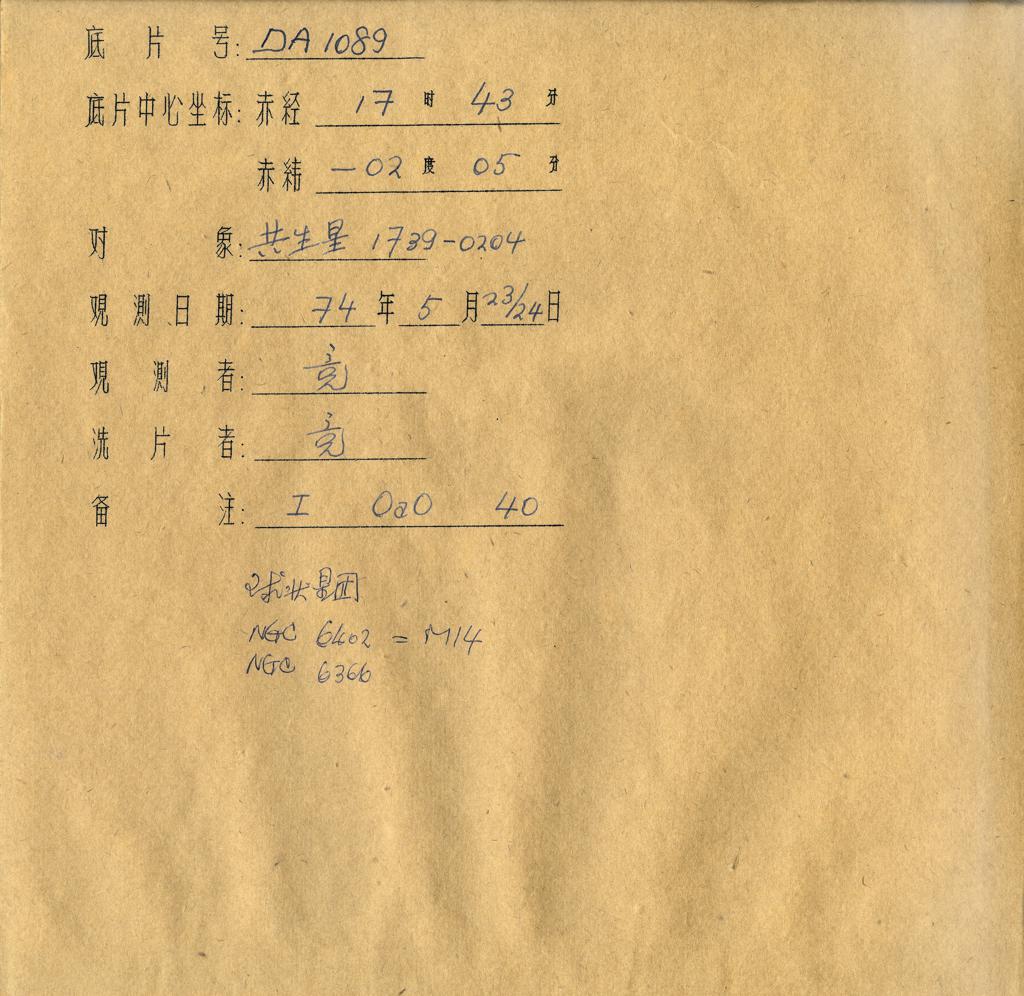 底片号: DA 1089
底片中心坐标: 赤经 17 时 43 分
赤纬 -02 度 05 分
对象: 共生星 1739-0204
观测日期: 74 年 5 月 23/24 日
观测者: 竞
洗片者: 竞
备注: I OaO 40
球状星团
NGC 6402 = M14
NGC 6366